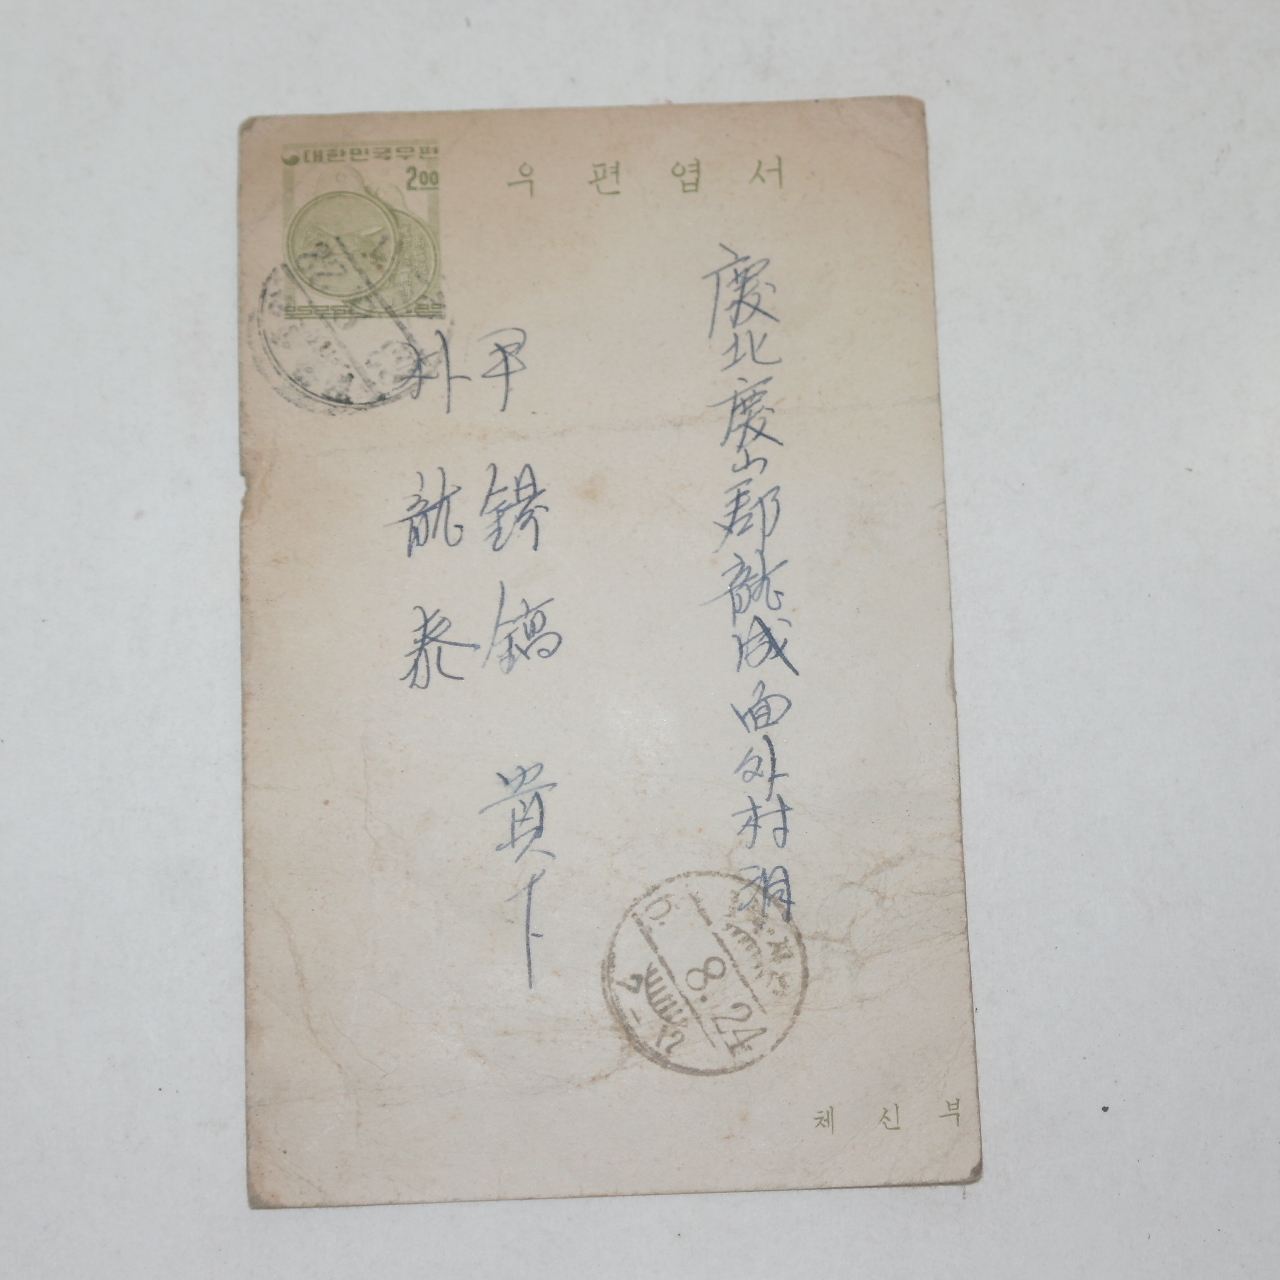 대한민국우편
2.00
우편엽서
慶北慶山郡龍城面外村洞
尹錫鎬 貴下
朴龍泰
8.24
체신부